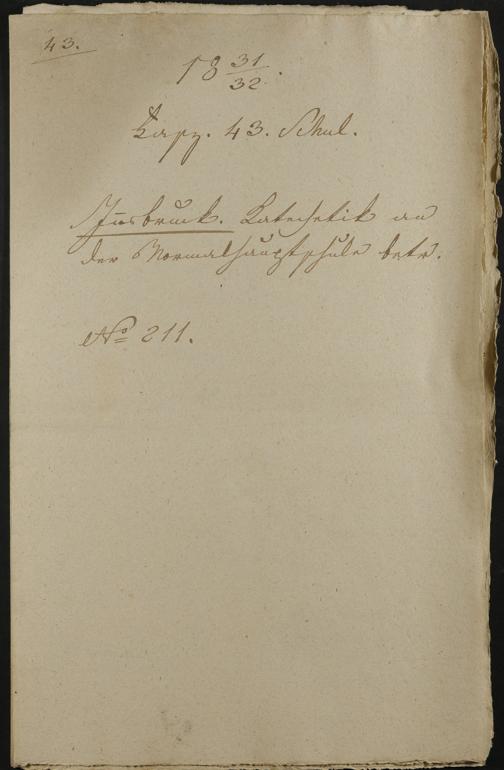 43.
18 31/32.
Fasz. 43. Schul.
Innsbruck. Katechetik an
der Normalhauptschule betr.
No 211.